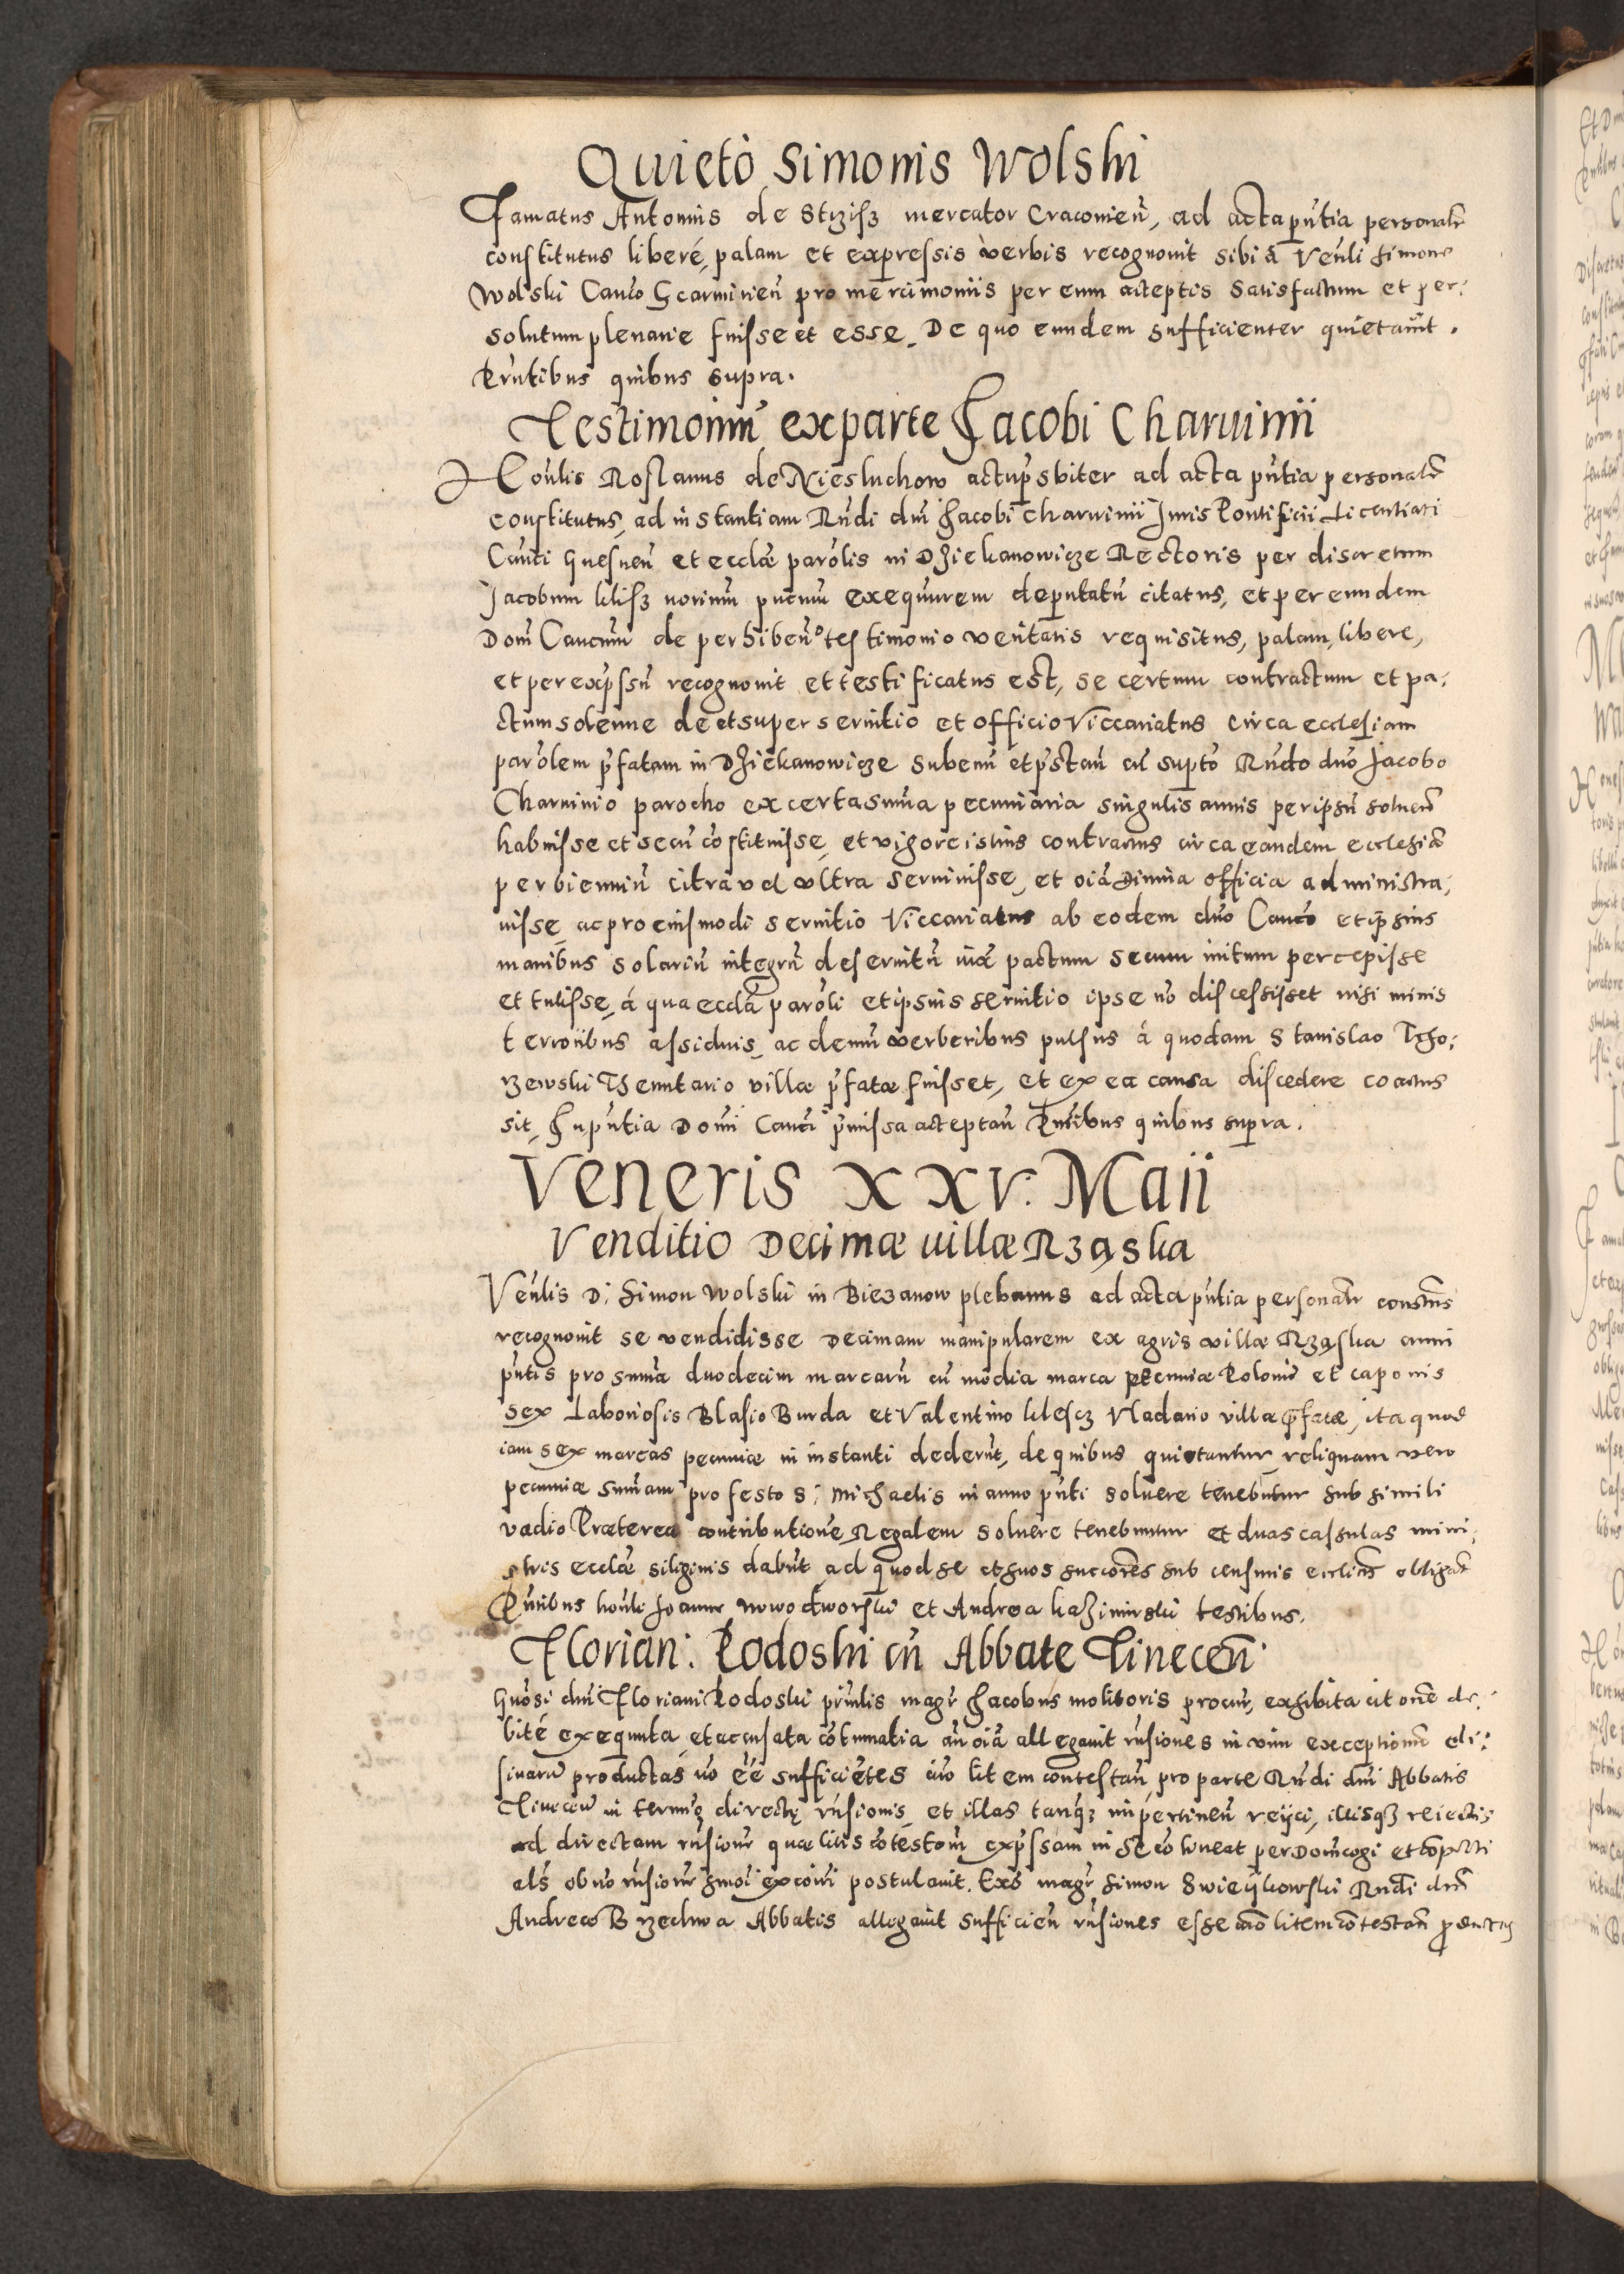 Quieto Simonis Wolski
Famatus Antonius de Stzisz mercator Cracovien̄, ad acta pn̄tia personalr̄
constitutus liberé, palam et expressis verbis recognouit sibi á Venli Simone
Wolski Canco Scarmirien̄ pro mercimoniis per eum acceptis satisfactum et per:
solutum plenarie fuisse et esse. De quo eundem sufficienter quietauit.
Prn̄tibus quibus supra.
Testimoniu̅ ex parte Jacobi Charuinii
Hon̄lis Rostanus de Niesluchow actu prs̄biter ad acta pn̄tia personalr̄
constitutus, ad instantiam Rn̄di dn̄i Jacobi Charuinii Juris Pontificii Licentiati
Can̄ci Gnesnen̄ et ecclæ parōlis in Dziekanowicze Rectoris per discretum
Jacobum
Dom̄ de perhiben̄º testimonio veritatis requisitus, palam, libere,
et per exp̄ssu̅ recognouit et testificatus est, se certum contractum et pa:
ctum solenne de et super seruitio et officio Viccariatus circa ecclesiam
parōlem pr̄fatam in Dziekanowicze subeun̄ et pr̄stan̄ cu̅ supto Rn̄do dn̄o Jacobo
Charuinio parocho ex certa sum̄a pecuniaria singulis annis per ipsu̅ soluen̄
habuisse et secu̅ co̅stituisse, et vigore istius contractus circa eandem ecclesia̅
per bienniu̅ citra vel vltra seruiuisse, et oia̅ diuina officia administra:
uisse, ac pro eiusmodi seruitio Viccariatus ab eodem dn̄o Canco et ipsius
manibus solariu̅ integru̅ deseruitu̅ iux̄ pactum secum initum percepisse
et tulisse, á qua eccla̅ parōli et ipsius seruitio ipse no̅ discessisset nisi minis
terroribus assiduis, ac demu̅ verberibus pulsus á quodam Stanislao Tcho:
rzewski Thenutario villæ pr̄fatæ fuisset, et ex ea causa discedere coactus
sit, In pn̄tia Domi Canci pr̄missa acceptan̄ Prn̄tibus quibus supra.
Veneris XXV. Maii
Venditio Decimæ uillæ Rząska
Ven̄lis D: Simon Wolski in Biezanow plebanus ad acta pn̄tia personalr̄ constus
recognouit se vendidisse Decimam manipularem ex agris villæ Rząska anni
pn̄tis pro sum̄a duodecim marcaru̅ cu̅ media marca pecuniæ Polonic̄ et caponis
sex Laboriosis Blasio Burda et Valentino Klescz Vladario villæ pr̄fatæ, ita quod
iam sex marcas pecuniæ in instanti dederūt, de quibus quietantur, reliquam vero
pecuniæ sum̄am pro festo S: Michaelis in anno pn̄ti soluere tenebuntur sub simili
vadio Præterea contributione̅ Regalem soluere tenebuntur et duas capulas mini:
stris ecclæ siliginis dabūt, ad quod se et suos succores sub censuris ecclicis obligar̄
Pn̄tibus hon̄li Joanne Nowodworski et Andrea Kazimirski testibus.
Florian: Podoski cu̅ Abbate Tinecen̄
Gn̄osi dn̄i Floriani Podoski prin̄lis magr̄ Jacobus Molitoris procur̄, exhibita citone̅ de:
bité exequuta, et accusata co̅tumatia an̄ oia̅ allegauit rn̄siones in vim exceptionu̅ eli:
siuaru̅ productas no̅ ee̅ sufficie̅tes cu̅o litem contestan̄ pro parte Rn̄di dn̄i Abbatis
Tinecen̄ in termi directę rn̄sionis, et illas tanq̄z impertinen̄ reijci, illisq̄z reiectis
ad directam rn̄sione̅ quæ litis co̅testone̅ exp̄ssam in se co̅tineat per Dom̄ cogi et co̅pelli
als̄ ob no̅ rn̄sione̅ postulauit. Exs̄ magr̄ Simon Swieijkowski Rn̄di dn̄i
Andreæ Brzechwa Abbatis allegauit sufficien̄ rn̄siones esse litem co̅testan̄